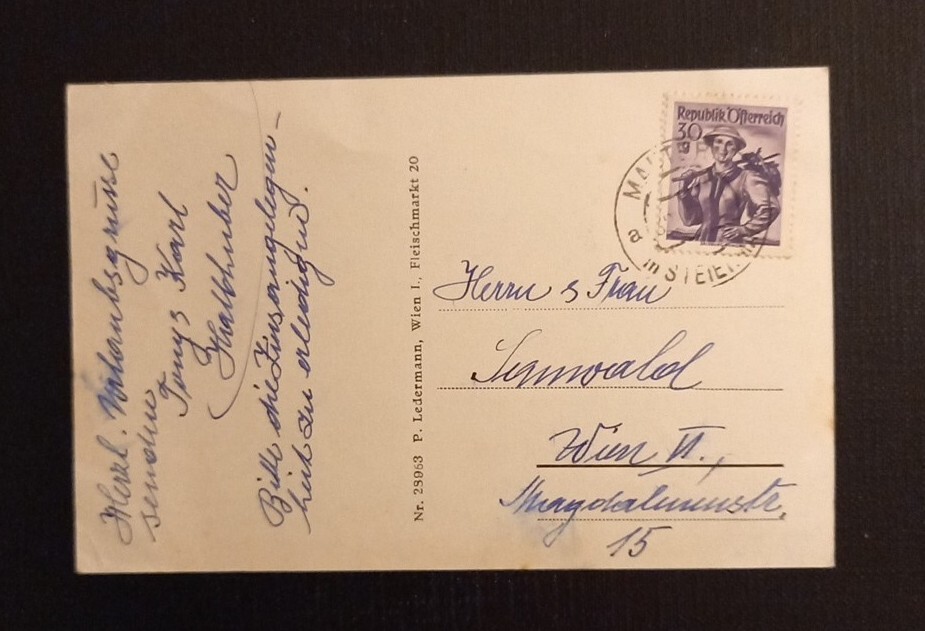 Herzl. Urlaubsgrüsse
senden
Tonys Karl
Bitte die Zinsangelegen-
heit zu erledigen.
Nr. 28963 P. Ledermann, Wien I., Fleischmarkt 20
Republik Österreich
30 g
a
in STEIERM
Herrn & Frau
Sennwald
Wien VI.,
Magdalenenstr.
15